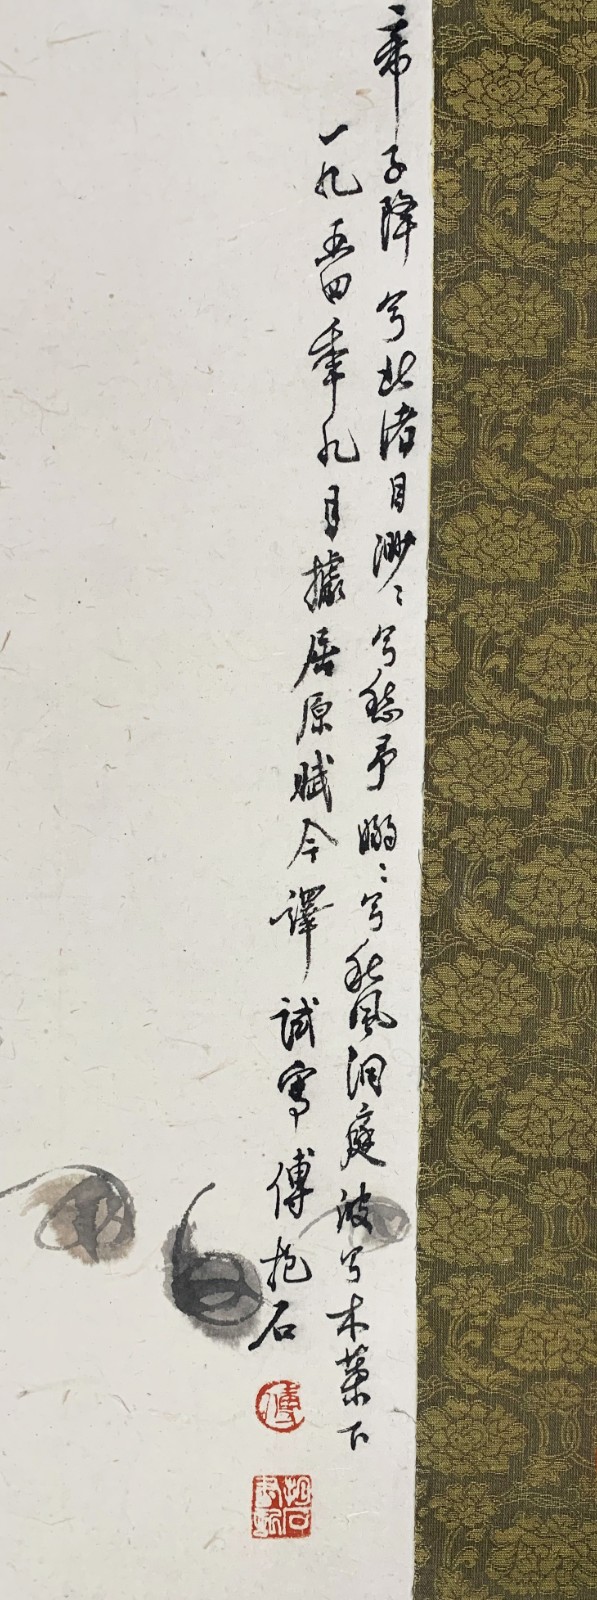 帝子降兮北渚目渺〻兮愁予嫋〻兮秋風洞庭波兮木葉下
一九五四年九月據屈原賦今譯試寫傅抱石
傅